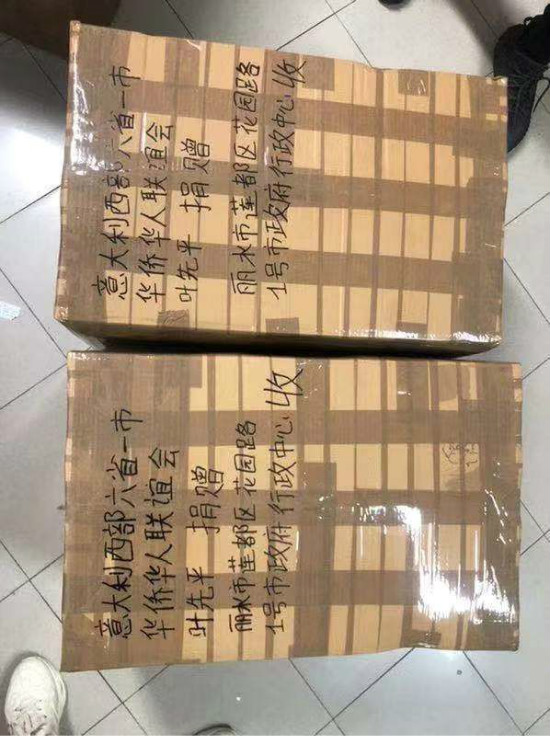 意大利西部六省一市
华侨华人联谊会
叶先平 捐赠
丽水市莲都区花园路
1号市政府行政中心收
意大利西部六省一市
华侨华人联谊会
叶先平 捐赠
丽水市莲都区花园路
1号市政府行政中心收